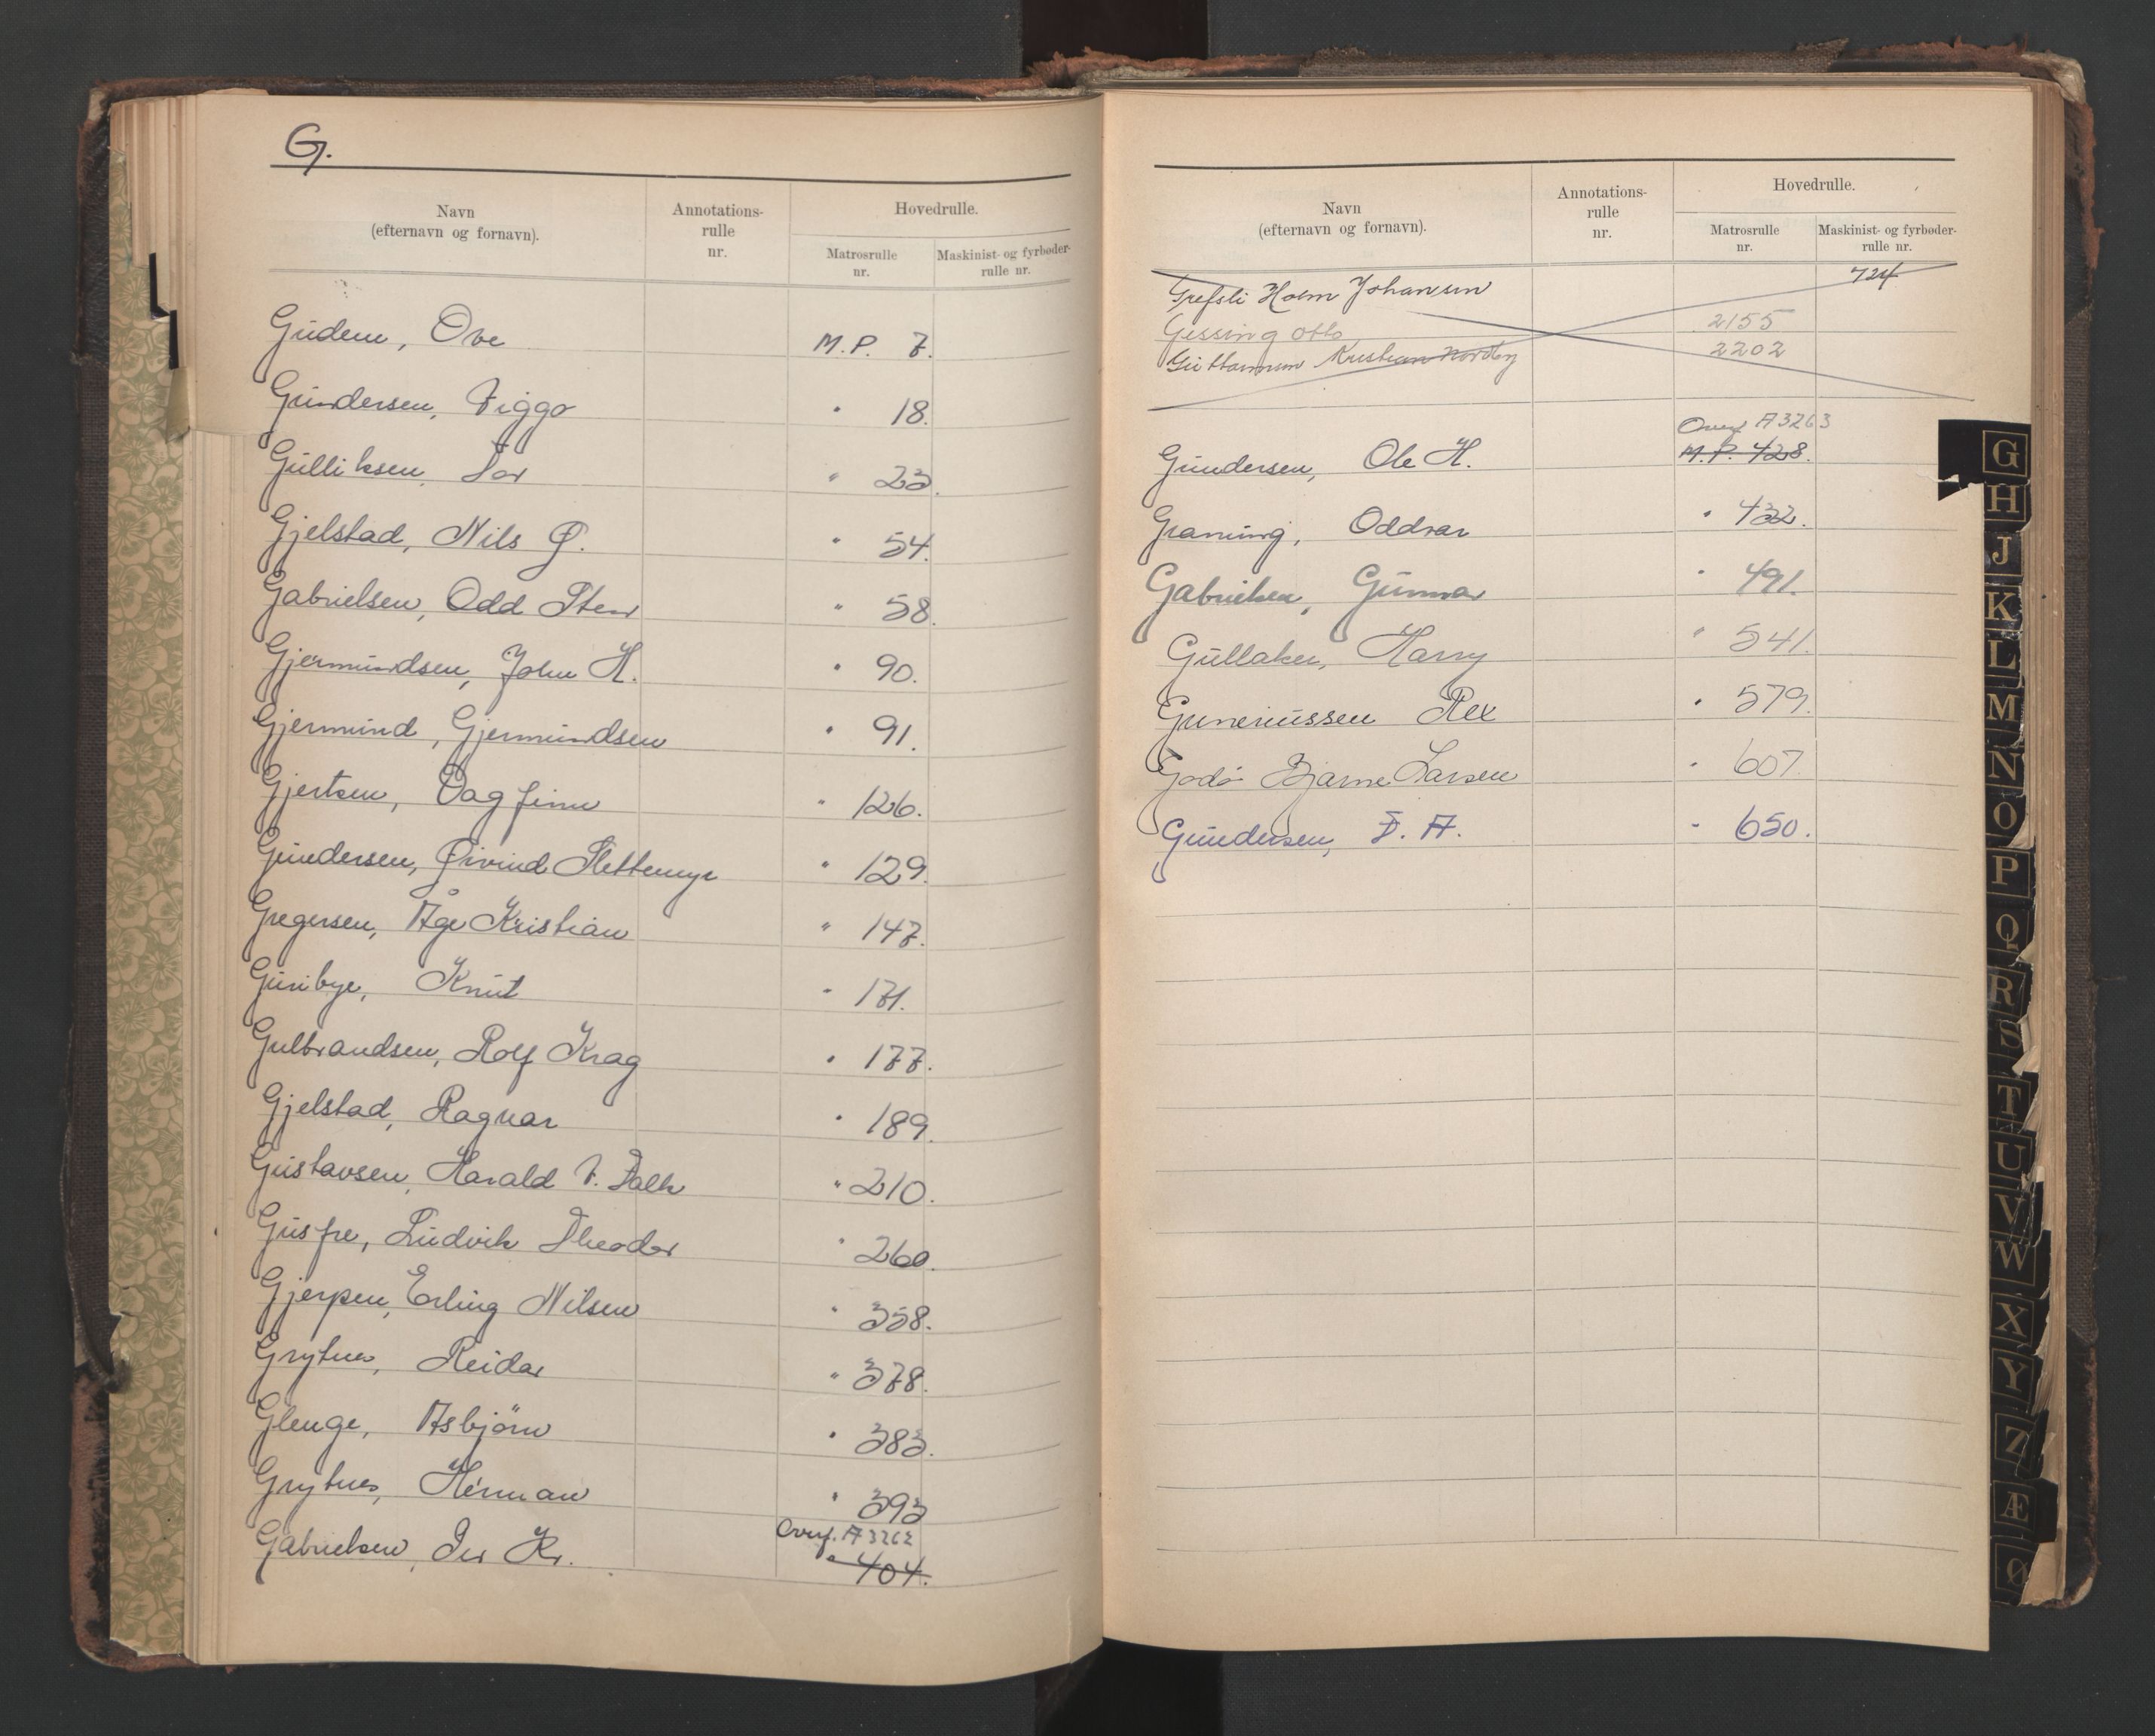 G.
Navn (efternavn og fornavn). Annotations-rulle nr. Hovedrulle.
Matrosrulle nr. Maskinist- og fyrbøder-rulle nr.
Gudem, Ove M.P. 7.
Gundersen, Viggo " 18.
Gulliksen, Tor " 23.
Gjelstad, Nils Ø. " 54.
Gabrielsen, Odd Sten " 58.
Gjermundsen, John H. " 90.
Gjermund, Gjermundsen " 91.
Gjertsen, Dagfinn " 126.
Gundersen, Øivind Slettemyr " 129.
Gregersen, Åge Kristian " 147.
Gunbye, Knut " 171.
Gulbrandsen, Rolf Krag " 177.
Gjelstad, Ragnar " 189.
Gustavsen, Harald V. Falk " 210.
Gusfre, Ludvik Theodor " 260.
Gjerpen, Erling Nilsen " 358.
Grytnes, Reidar " 378.
Glenge, Asbjörn " 383.
Grytnes, Herman " 393
Overf. A 3262
Gabrielsen, Per Kr. " 404.
Navn (efternavn og fornavn). Annotations-rulle nr. Hovedrulle.
Matrosrulle nr. Maskinist- og fyrbøder-rulle nr.
Grefsli Holm Johansen 724
Gessing Otto 2155
Guttormsen Kristian Nordby 2202
Overf A 3263
Gundersen, Ole H. M.P. 428.
Graning, Oddvar " 432.
Gabrielsen, Gunnar " 491.
Gullaker, Harry " 541.
Guneriussen Rex " 579.
Godø Bjarne Larsen " 607.
Gundersen, F. A. " 650.
G
H
J
K
L
M
N
O
P
Q
R
S
T
U
V
W
X
Y
Z
Æ
Ø